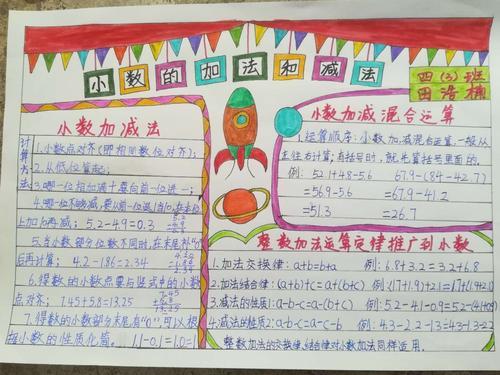 小数的加法和减法
四(3)班
小数加减法
计算方法
1.小数点对齐(即相同数位对齐);
2.从低位算起;
3.哪一位相加满十要向前一位进一;
上加后再减; 5.2-4.9=0.3
5.当小数部分位数不同时,在末尾补"0"
后再计算; 4.2-1.86=2.34
6.得数的小数点要与竖式中的小数
点对齐; 7.45+5.8=13.25
7.得数的小数部分末尾有"0",可以根
据小数的性质化简。 1.1-0.1=1.0=1
小数加减混合运算
1.运算顺序:小数加减混合运算,一般从
左往右计算;有括号时,就先算括号里面的。
例: 52.1+4.8-5.6 67.9-(84-42.7)
=56.9-5.6 =67.9-41.2
=51.3 =26.7
整数加法运算定律推广到小数
1.加法交换律:a+b=b+a 例:6.8+3.2=3.2+6.8
2.加法结合律:(a+b)+c=a+(b+c) 例:(17+1.9)+2.1=17+(1.9+2.1)
3.减法的性质1:a-b-c=a-(b+c) 例:5.2-4.1-0.9=5.2-(4.1+0.9)
4.减法的性质2:a-b-c=a-c-b 例:4.3-2.2-1.3=4.3-1.3-2.2
整数加法的交换律,结合律对小数加法同样适用。